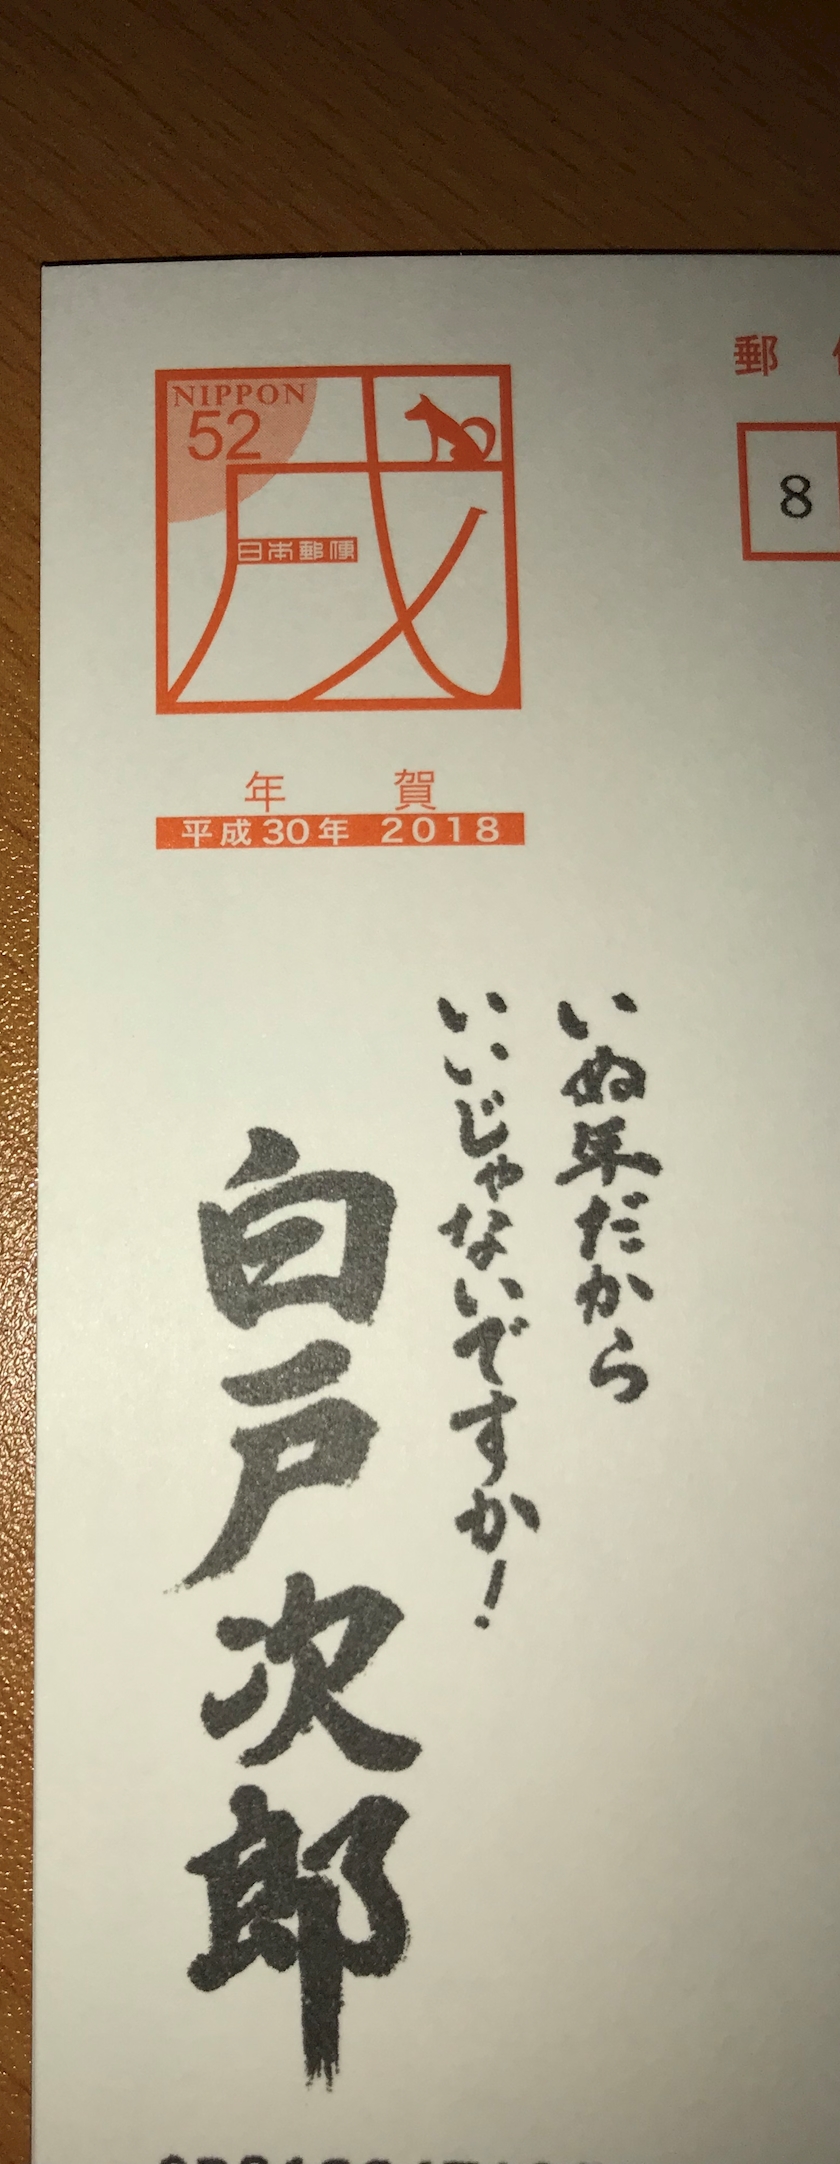 NIPPON
52
日本郵便
戌
年賀
平成30年 2018
郵
8
いぬ年だから
いいじゃないですか!
白戸次郎